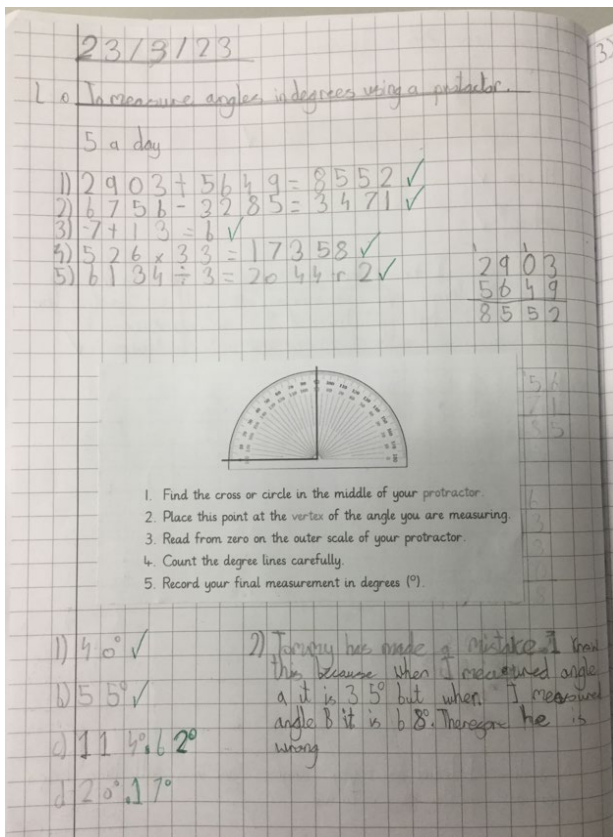 23/3/23
L o To measure angles in degrees using a protactor.
5 a day
1) 2903 + 5649 = 8552 ✓
2) 6756 - 3285 = 3471 ✓
3) -7 + 13 = 6 ✓
4) 526 x 33 = 17358 ✓
5) 6134 ÷ 3 = 2044 r 2 ✓
2903
5649
8552
1. Find the cross or circle in the middle of your protractor.
2. Place this point at the vertex of the angle you are measuring.
3. Read from zero on the outer scale of your protractor.
4. Count the degree lines carefully.
5. Record your final measurement in degrees (°).
1) 40° ✓
b) 55° ✓
c) 114°.62°
d) 20°.17°
2) Tommy has made a mistake. I know
this because when I measured angle
a it is 35° but when I measured
angle B it is 68°. Theregore he is
wrong
3)